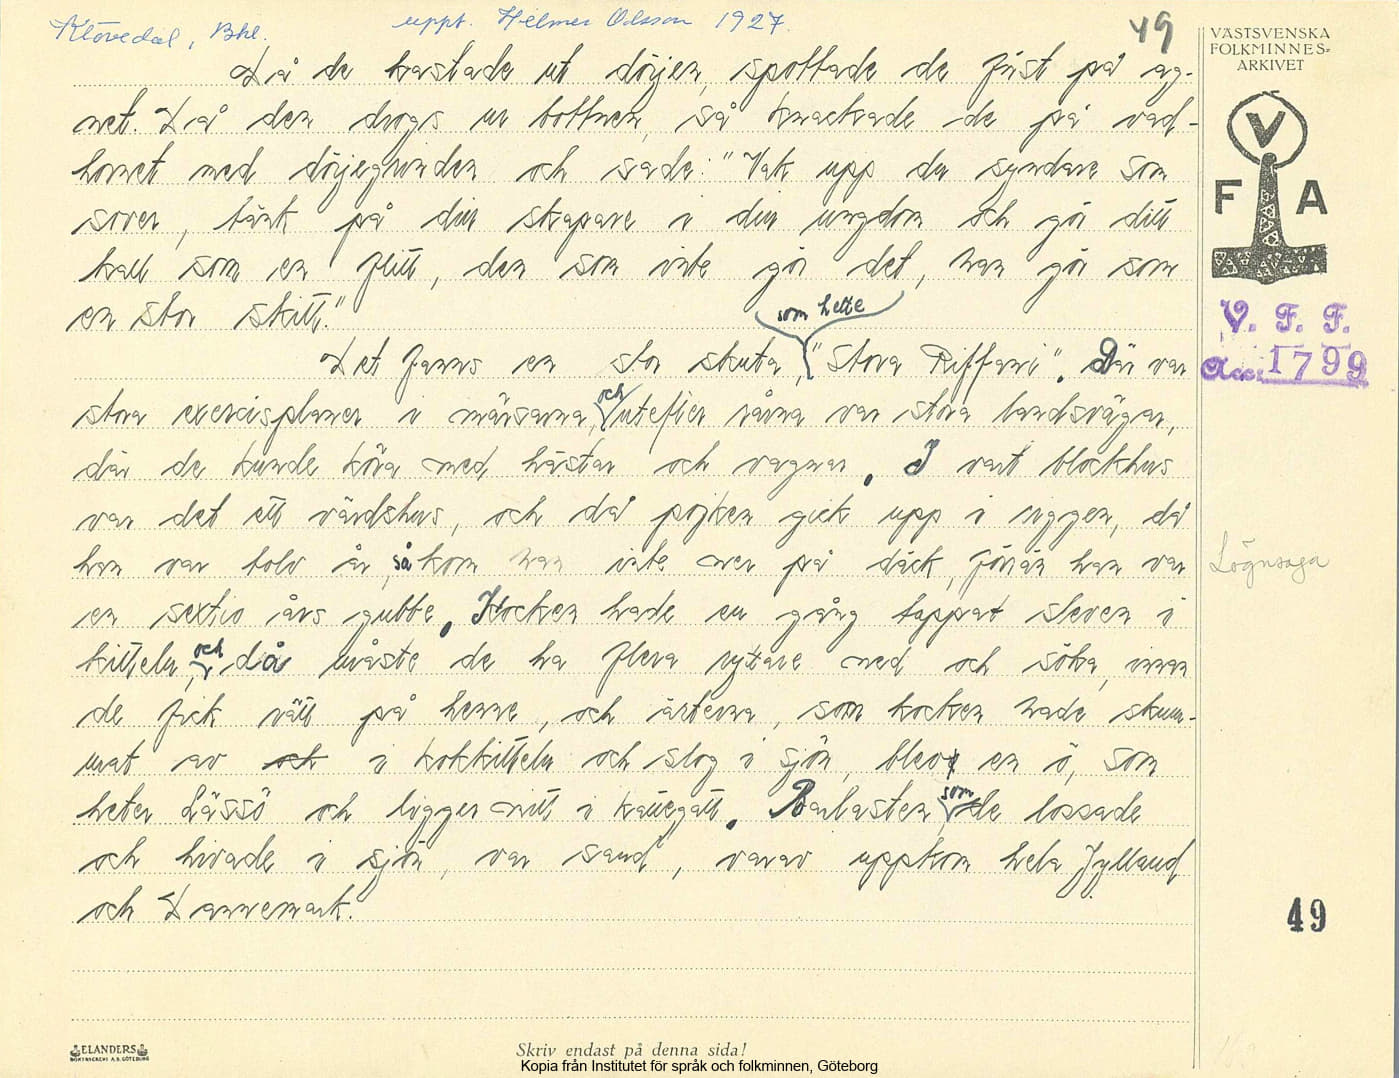 Klövedal, Bhl. uppt. Helmer Olsson 1927.
49
VÄSTSVENSKA
FOLKMINNES-
ARKIVET
V
F A
V. F. F.
Acc. 1799
Då de kastade ut dörjen, spottade de först på ag-
net. Då den drogs ur bottnen, så knackade de på vad-
hornet med dörjegrinden och sade: "Vak upp du syndare som
sover, tänk på din skapare i din ungdom och gör ditt
kall som en flitt, den som inte gör det, han gör som
en stor skitt."
Det fanns en stor skuta, som hette "Stora Riffani". Där var
stora exercisplaner i märsarna, och utefter rårna var stora landsvägar,
där de kunde köra med hästar och vagnar. I vart blockhus
var det ett värdshus, och då pojken gick upp i riggen, då
han var tolv år, så kom han inte ner på däck, förrän han var
en sextio års gubbe. Kocken hade en gång tappat sleven i
kitteln, och då måste de ha flera ryttare med och söka, innan
de fick rätt på henne, och ärterna, som kocken hade skum-
mat av och i kokkitteln och slog i sjön, blev en ö, som
heter Lässö och ligger mitt i Kattegatt. Barlasten, som de lossade
och hivade i sjön, var sand, varav uppkom hela Jylland
och Dannemark.
Lögnsaga
49
ELANDERS
BOKTRYCKERI A.B. GÖTEBORG
Skriv endast på denna sida!
Kopia från Institutet för språk och folkminnen, Göteborg